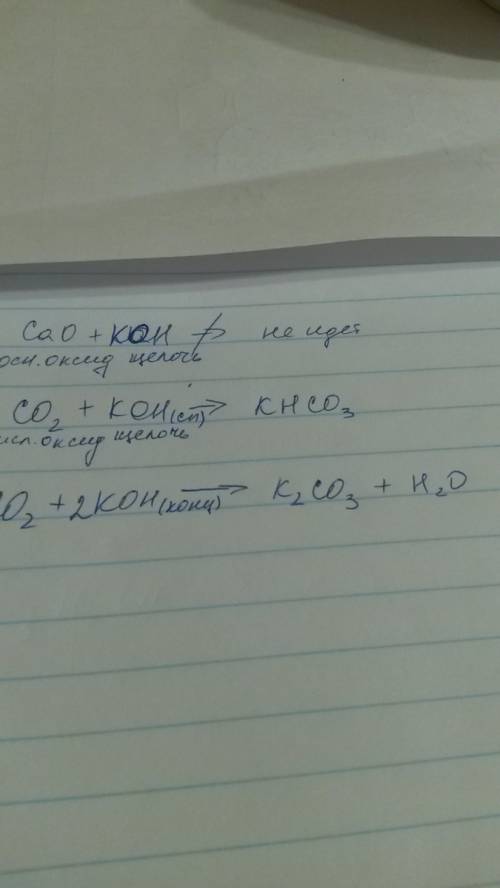 CaO + KOH ↛ не идет
осн. оксид щелочь
CO₂ + KOH(сп) → KHCO₃
исл. оксид щелочь
CO₂ + 2KOH(конц) → K₂CO₃ + H₂O